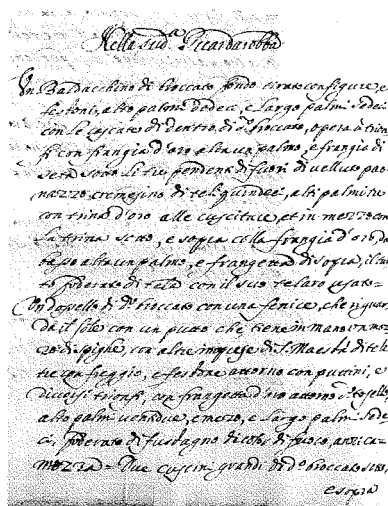 Nella sud.ª Guardarobba
Un Baldacchino di broccato fondo tirato con figure, e
festoni, alto palmi dodeci, e largo palmi dodeci
con le cascate di dentro di d.º broccato, opera à trion-
fi con frangia d'oro alta un palmo, e frangia di
seta sotto li tre pendenti di fuori di velluto pao-
nazzo cremesino di teli quindeci, alti palmi tre
con trina d'oro alle cuscitture, et in mezzo con
la trina sotto, e sopra colla frangia d'oro, da
basso alta un palmo, e frangetta di sopra, il tut-
to foderato di tela con il suo telaro usato =
Un dosello di d.º broccato con una fenice, che riguar-
da il sole con un putto che tiene in mano un maz-
zo di spighe, con altre imprese di S. Maestà di tele
tre con freggio, e festone attorno con puttini, e
diversi trionfi, con frangetta d'oro attorno d.º dosello,
alto palmi ventidue, e mezzo, e largo palmi dode-
ci, foderato di fustagno di color di fuoco, anzi ca-
mozza = Due cuscini grandi di d.º broccato sotto,
e sopra